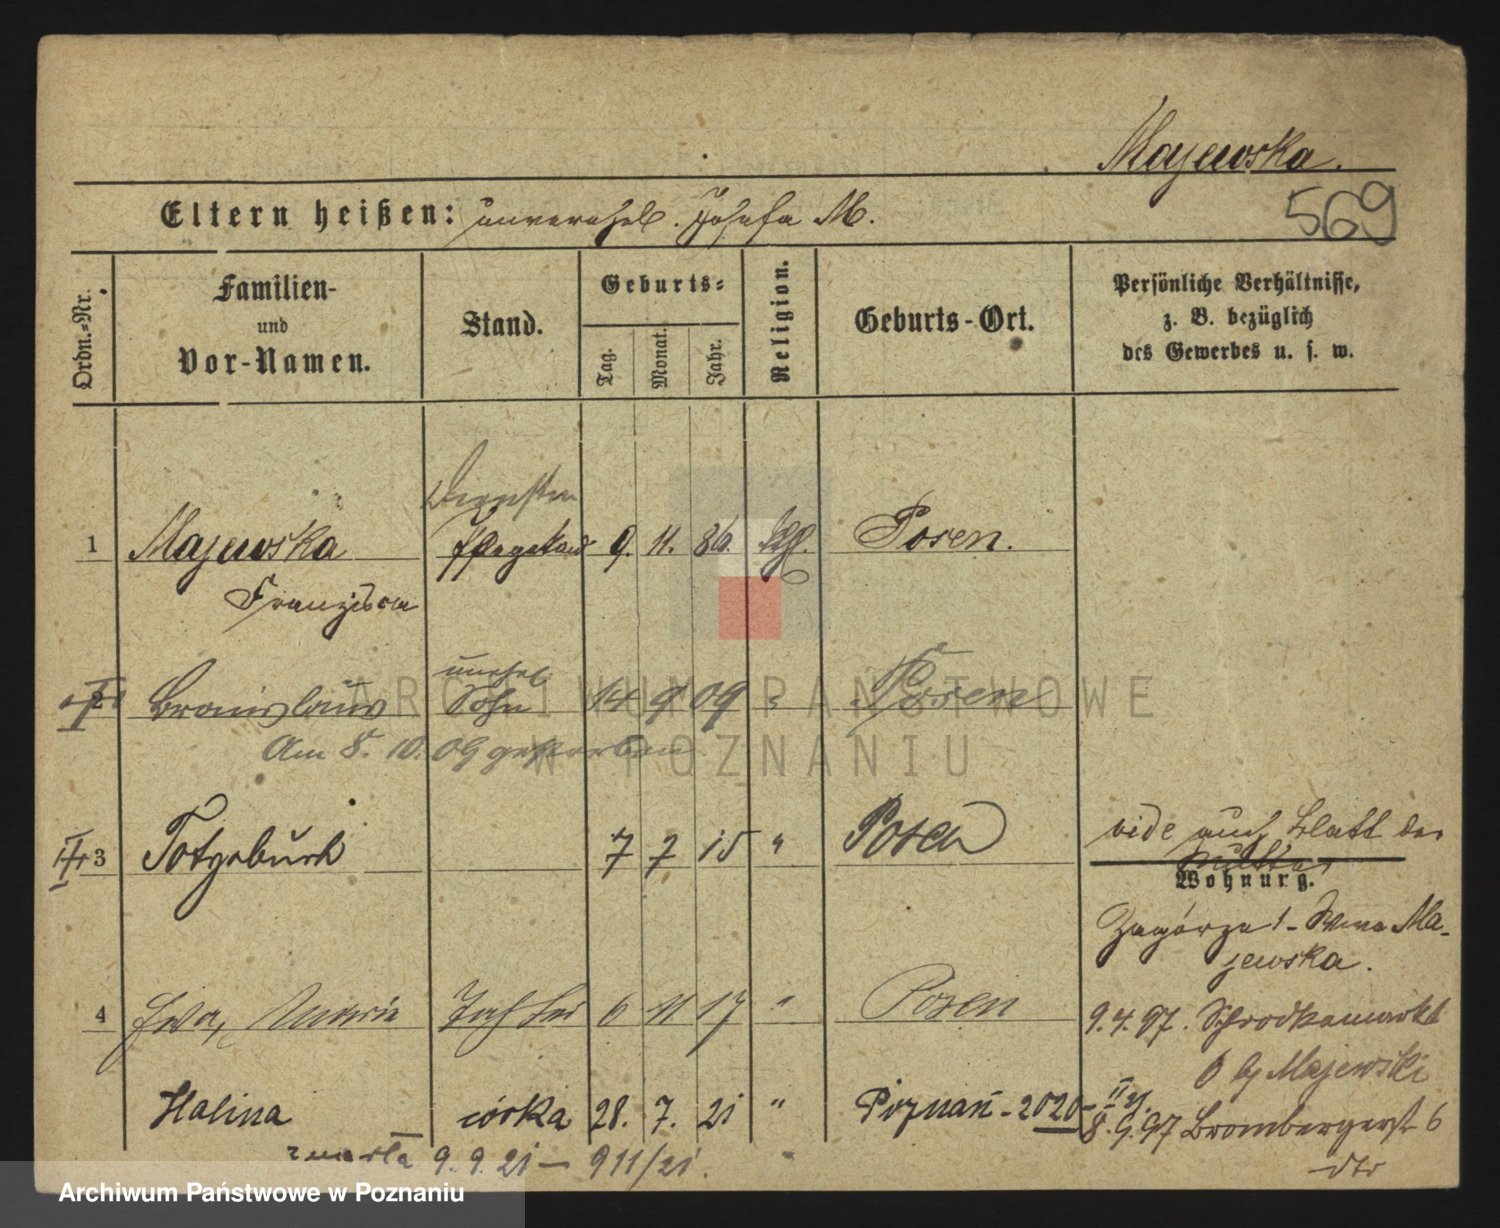 Majewska.
569
Eltern heißen: unverehel. Josefa M.
Ordn.-Nr.
Familien-
und
Vor-Namen.
Stand.
Geburts-
Tag.
Monat.
Jahr.
Religion.
Geburts-Ort.
Persönliche Verhältnisse,
z. B. bezüglich
des Gewerbes u. s. w.
1 Majewska Pflegekind 9. 11. 86. kth. Posen.
Franziska
unehel
2 Bronislaus Sohn 14 9 09 Posen
Am 8. 10. 09 gestorben
vide auch Blatt der
Mutter
3 Totgeburt 7 7 15 " Posen
Wohnung.
Zagórze 1 Ma-
jewska.
4 Tochter 6 11 17 " Posen
9. 4. 97. Schrodkamarkt
6 bei Majewski
Halina córka 28. 7. 21 " Poznań - 2020 - II 21.
8. 9. 97 Brombergerst 6
zmarła 9. 9. 21 - 911/21.
dto
ARCHIWUM PAŃSTWOWE
W POZNANIU
Archiwum Państwowe w Poznaniu